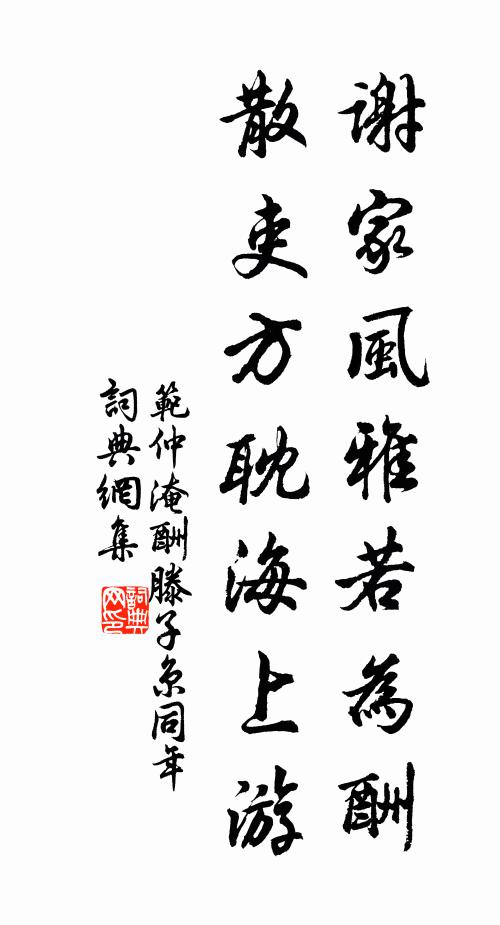 謝家風雅若為酬
散吏方耽海上游
範仲淹酬滕子京同年
詞典網集
詞典
网印